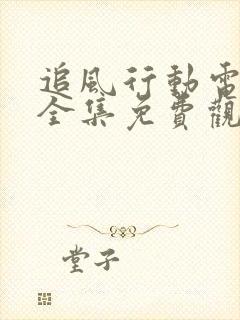 追風行動電
全集免費觀
堂子